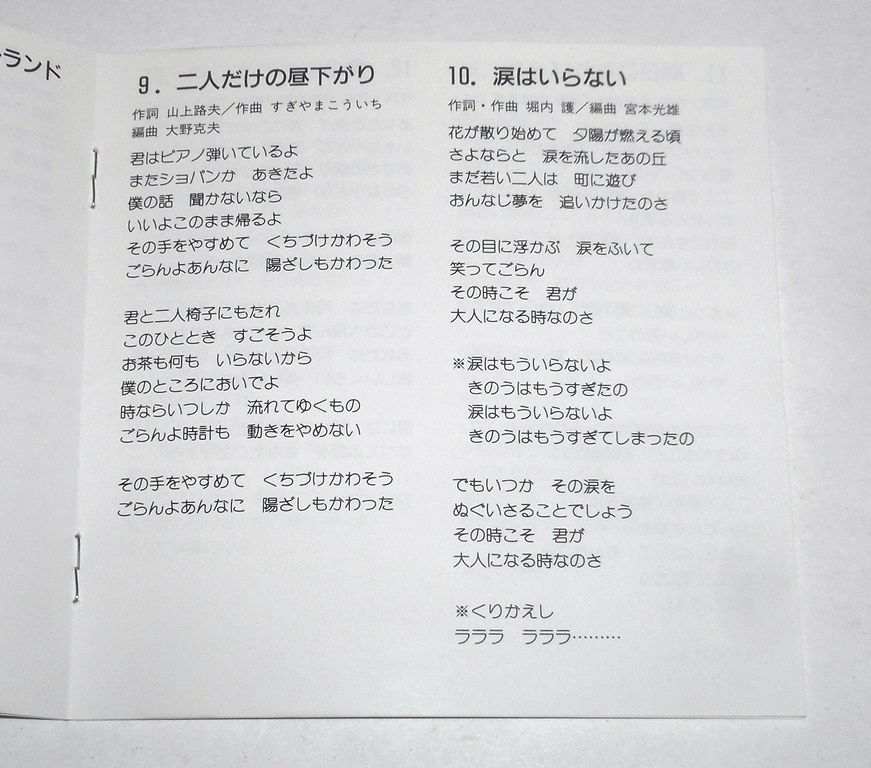 ランド
9．二人だけの昼下がり
作詞 山上路夫／作曲 すぎやまこういち
編曲 大野克夫
君はピアノ弾いているよ
またショパンか　あきたよ
僕の話　聞かないなら
いいよこのまま帰るよ
その手をやすめて　くちづけかわそう
ごらんよあんなに　陽ざしもかわった
君と二人椅子にもたれ
このひととき　すごそうよ
お茶も何も　いらないから
僕のところにおいでよ
時ならいつしか　流れてゆくもの
ごらんよ時計も　動きをやめない
その手をやすめて　くちづけかわそう
ごらんよあんなに　陽ざしもかわった
10．涙はいらない
作詞・作曲 堀内 護／編曲 宮本光雄
花が散り始めて　夕陽が燃える頃
さよならと　涙を流したあの丘
まだ若い二人は　町に遊び
おんなじ夢を　追いかけたのさ
その目に浮かぶ　涙をふいて
笑ってごらん
その時こそ　君が
大人になる時なのさ
※涙はもういらないよ
きのうはもうすぎたの
涙はもういらないよ
きのうはもうすぎてしまったの
でもいつか　その涙を
ぬぐいさることでしょう
その時こそ　君が
大人になる時なのさ
※くりかえし
ラララ　ラララ………